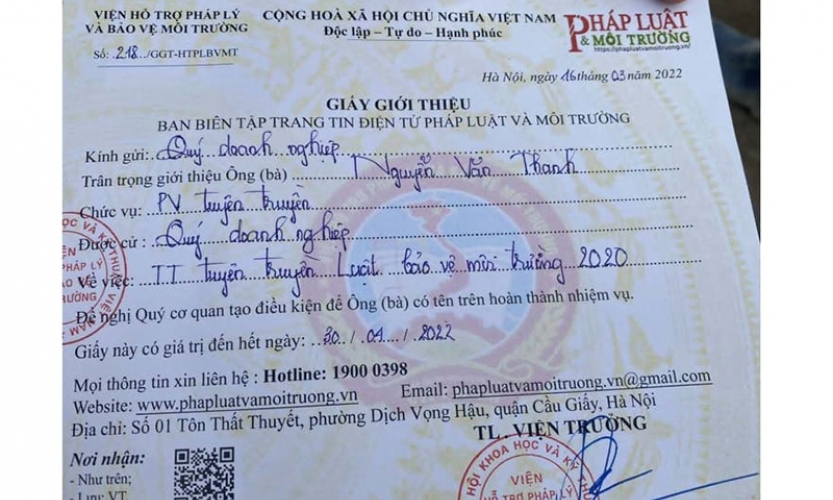 VIỆN HỖ TRỢ PHÁP LÝ
VÀ BẢO VỆ MÔI TRƯỜNG
Số: 218../GGT-HTPLBVMT
CỘNG HOÀ XÃ HỘI CHỦ NGHĨA VIỆT NAM
Độc lập – Tự do – Hạnh phúc
PHÁP LUẬT
& MÔI TRƯỜNG
https://phapluatvamoitruong.vn/
Hà Nội, ngày 16 tháng 03 năm 2022
GIẤY GIỚI THIỆU
BAN BIÊN TẬP TRANG TIN ĐIỆN TỬ PHÁP LUẬT VÀ MÔI TRƯỜNG
Kính gửi: Quý doanh nghiệp
Trân trọng giới thiệu Ông (bà) Nguyễn Văn Thanh
Chức vụ: PV tuyên truyền
Được cử : Quý doanh nghiệp
Về việc: TT tuyên truyền Luật bảo vệ môi trường 2020
Đề nghị Quý cơ quan tạo điều kiện để Ông (bà) có tên trên hoàn thành nhiệm vụ.
Giấy này có giá trị đến hết ngày: 30 / 04 / 2022
Mọi thông tin xin liên hệ : Hotline: 1900 0398
Website: www.phapluatvamoitruong.vn Email: phapluatvamoitruong.vn@gmail.com
Địa chỉ: Số 01 Tôn Thất Thuyết, phường Dịch Vọng Hậu, quận Cầu Giấy, Hà Nội
TL. VIỆN TRƯỞNG
Nơi nhận:
- Như trên;
- Lưu: VT
VIỆN
HỖ TRỢ PHÁP LÝ